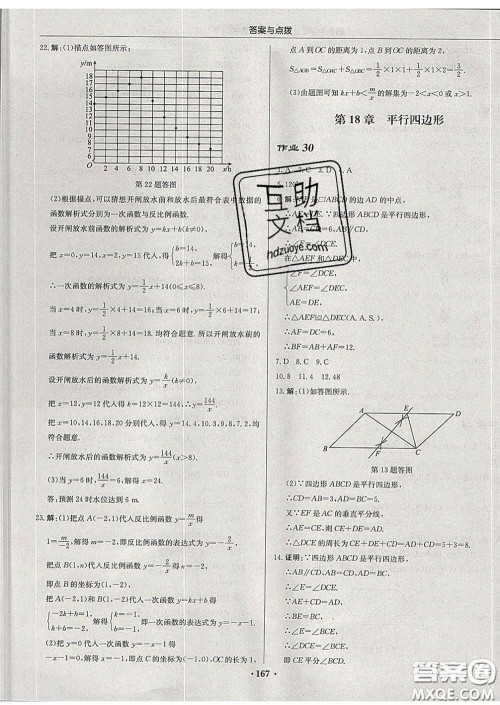 答案与点拨
22.解:(1)描点如答图所示:
y/m
18
17
16
15
14
13
12
11
10
9
8
7
6
0 2 4 6 8 10 12 14 16 18 20 x/h
第22题答图
(2)根据描点,可以猜想开闸放水前和放水后最符合表中数据的
函数解析式分别为一次函数与反比例函数.
设开闸放水前的函数解析式为y=kx+b(k≠0),
把x=0,y=14,x=2,y=15代入得{b=14, 2k+b=15, 解得{k=1/2, b=14.
∴一次函数的解析式为y=1/2x+14(0≤x≤8).
当x=4时,y=1/2×4+14=16;当x=6时,y=1/2×6+14=17;
当x=8时,y=1/2×8+14=18.均符合题意.所以开闸放水前的函
数解析式为y=1/2x+14.
设开闸放水后的函数解析式为y=k/x(k≠0),
把x=12,y=12代入得k=12×12=144,∴y=144/x.
把x=10,14,16,18,20分别代入得y=14.4,10.3,9,8,7.2,均
符合题意.
∴开闸放水后的函数解析式为y=144/x(x>8).
(3)当y=6时,6=144/x,解得x=24.
答:预测24时水位达到6 m.
23.解:(1)把点A(-2,1)代入反比例函数y=m/x得
1=m/-2,解得m=-2,即反比例函数的表达式为y=-2/x.
把点B(1,n)代入反比例函数y=-2/x得n=-2,
即点B的坐标为(1,-2).
把A(-2,1)和B(1,-2)代入一次函数y=kx+b得
{-2k+b=1, k+b=-2, 解得{k=-1, b=-1, 即一次函数的表达式为y=-x-1.
(2)把y=0代入一次函数y=-x-1得
-x-1=0,即点C的坐标为(-1,0),OC的长为1,
点A到OC的距离为1,点B到OC的距离为2.
S△AOB=S△OAC+S△OBC=1/2×1×1+1/2×1×2=3/2.
(3)由题图可知kx+b<m/x的解集为-2<x<0或x>1.
第18章 平行四边形
作业30
4.A
互助
文档
hdzuoye.com
ABCD的边AD的中点,
=∠DCE,
在△AEF和△DEC中,
{∠AEF=∠DEC,
∴△AEF≌△DEC(A.A.S.),
∴AF=DC=6.
7.D 8.C 9.C
10.8 11.4 12.48
13.解:(1)如答图所示.
A E D
B F C
第13题答图
(2)∵四边形ABCD是平行四边形,
∴AD=BC=5,CD=AB=3.
又∵EF是AC的垂直平分线,
∴AE=CE.
∴△DCE的周长为CE+DE+CD=AD+CD=5+3=8.
14.证明:∵四边形ABCD是平行四边形,
∴AB=CD,AD∥BC.
又∵AE+CD=AD,
∴AE+AB=AD.
又∵AE+DE=AD,
∴AB=DE,∴DE=CD.
∴∠DCE=∠DEC.
∵AD∥BC,
∴∠DEC=∠BCE,
∴∠DCE=∠BCE,
即CE平分∠BCD.
· 167 ·
答案圈
MXQE.COM